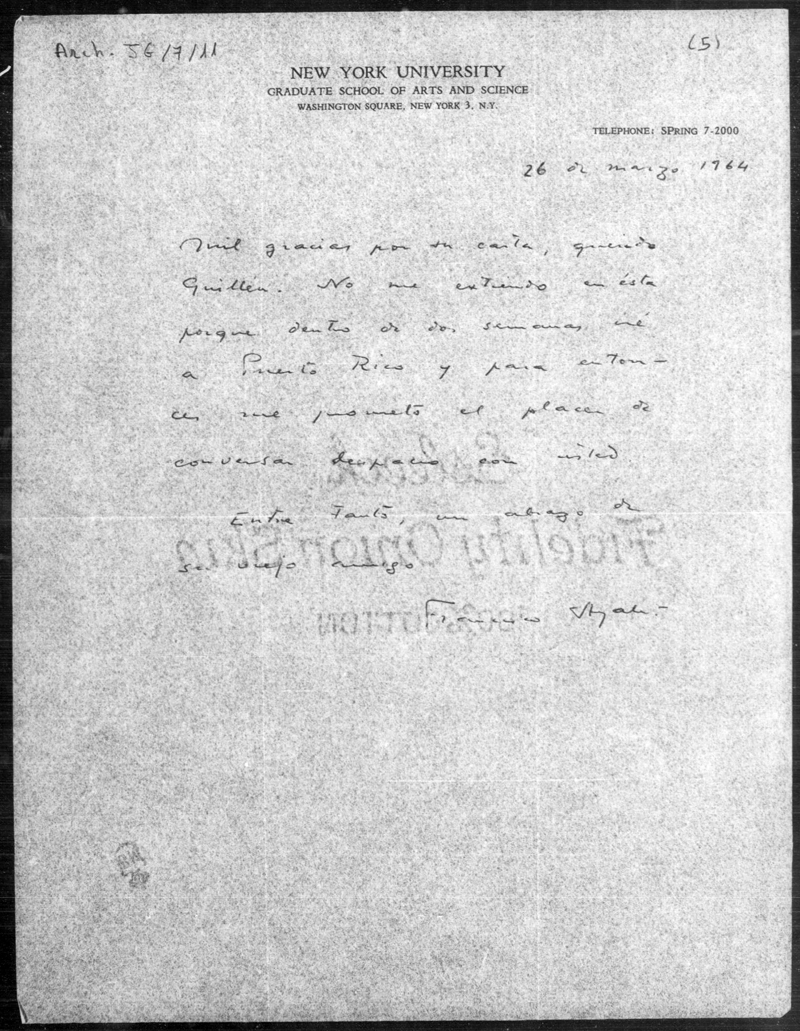 Arch. JG/7/11
(5)
NEW YORK UNIVERSITY
GRADUATE SCHOOL OF ARTS AND SCIENCE
WASHINGTON SQUARE, NEW YORK 3, N.Y.
TELEPHONE: SPRING 7-2000
26 de marzo 1964
Mil gracias por su carta, querido
Guillén. No me extiendo en ésta
porque dentro de dos semanas iré
a Puerto Rico y para enton-
ces me prometo el placer de
conversar despacio con usted.
Entre tanto, un abrazo de
su viejo amigo
Francisco Ayala.-
Fidelity Onion Skin
100% COTTON